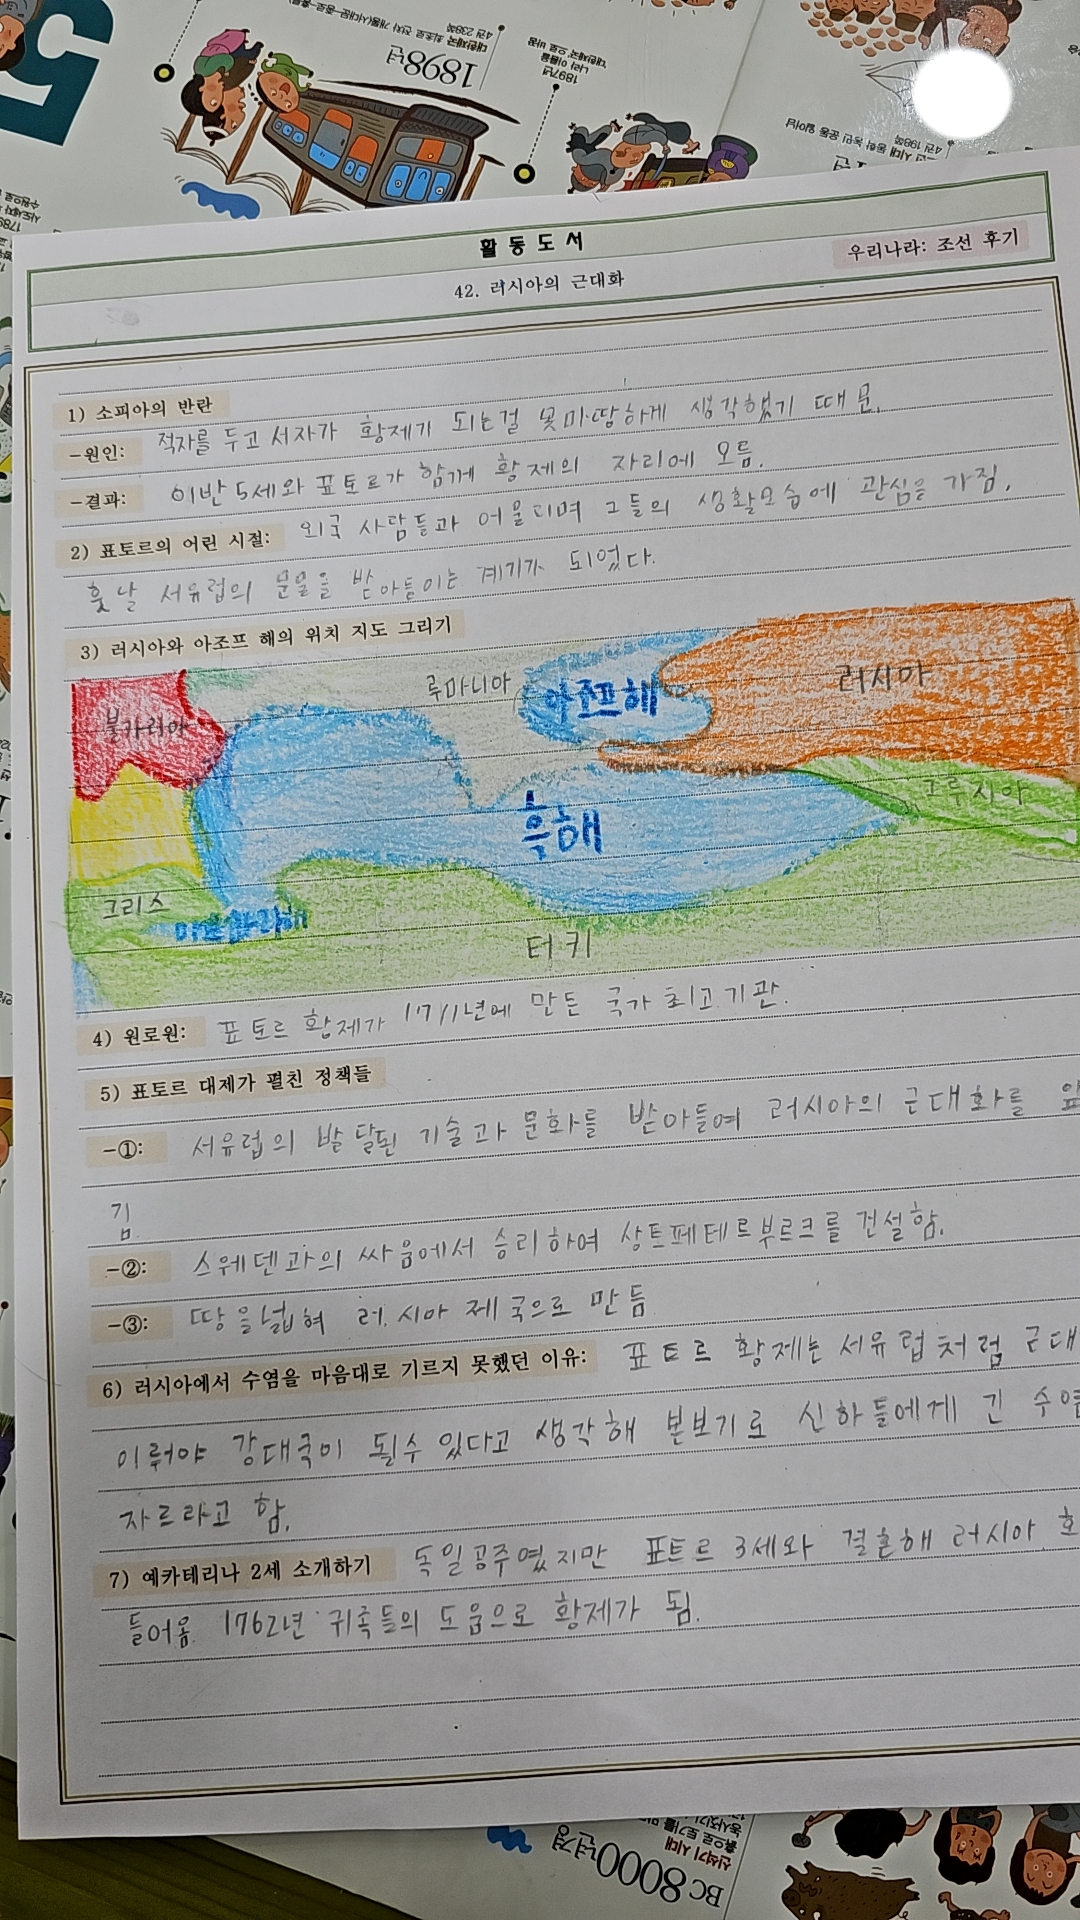 1898년
대한제국 최초로 전차 개통(서대문-종로-홍릉)
4권 239쪽
1897년
나라 이름을
대한제국으로 바꿈
4권 198쪽
활동도서
42. 러시아의 근대화
우리나라: 조선 후기
1) 소피아의 반란
-원인: 적자를 두고 서자가 황제가 되는걸 못마땅하게 생각했기 때문.
-결과: 이반 5세와 표토르가 함께 황제의 자리에 오름.
2) 표토르의 어린 시절: 외국 사람들과 어울리며 그들의 생활모습에 관심을 가짐.
훗날 서유럽의 문물을 받아들이는 계기가 되었다.
3) 러시아와 아조프 해의 위치 지도 그리기
불가리아
루마니아
아조프해
러시아
흑해
그리스
터키
4) 원로원: 표토르 황제가 1711년에 만든 국가 최고 기관.
5) 표토르 대제가 펼친 정책들
-①: 서유럽의 발달된 기술과 문화를 받아들여 러시아의 근대화를
김
-②: 스웨덴과의 싸움에서 승리하여 상트페테르부르크를 건설함.
-③: 땅을 넓혀 러시아 제국으로 만듬
6) 러시아에서 수염을 마음대로 기르지 못했던 이유: 표토르 황제는 서유럽처럼 근대
이뤄야 강대국이 될수 있다고 생각해 본보기로 신하들에게 긴
자르라고 함.
7) 예카테리나 2세 소개하기 독일공주였지만 표트르 3세와 결혼해 러시아
들어옴. 1762년 귀족들의 도움으로 황제가 됨.
BC 8000년경
신석기 시대